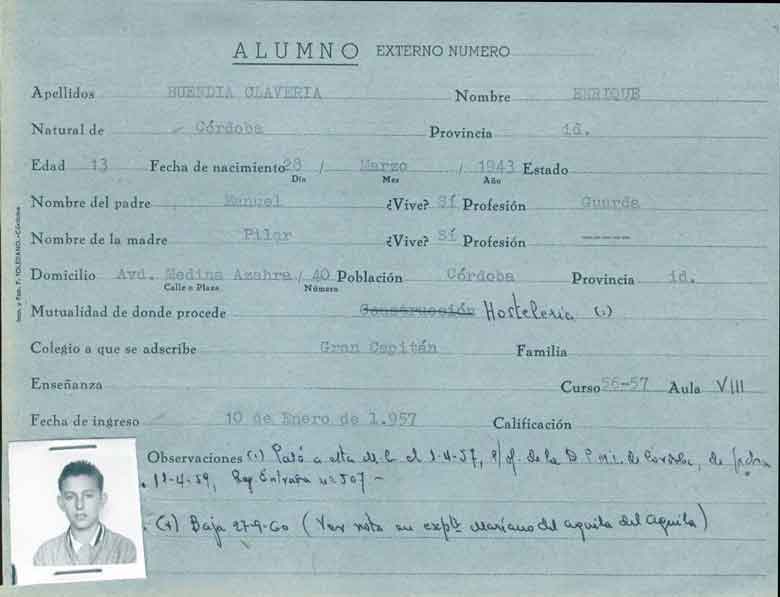 ALUMNO EXTERNO NUMERO
Apellidos BUENDIA CLAVERIA Nombre ENRIQUE
Natural de Córdoba Provincia id.
Edad 13 Fecha de nacimiento 28 / Marzo / 1943 Estado
Día Mes Año
Nombre del padre Manuel ¿Vive? Sí Profesión Guarda
Nombre de la madre Pilar ¿Vive? Sí Profesión -----
Domicilio Avd. Medina Azahra / 40 Población Córdoba Provincia id.
Calle o Plaza Número
Mutualidad de donde procede Construcción Hostelería (1)
Colegio a que se adscribe Gran Capitán Familia
Enseñanza
Curso 56-57 Aula VIII
Fecha de ingreso 10 de Enero de 1.957 Calificación
Observaciones (1) Pasó a esta el 1-4-57, de la de Córdoba, de fecha
11-4-59, Reg. Entrada nº 507 -
Baja 27-9-60 (Ver nota en expte Mariano del aguila del aguila)
Imp. y Pap. F. TOLEDANO.-Córdoba